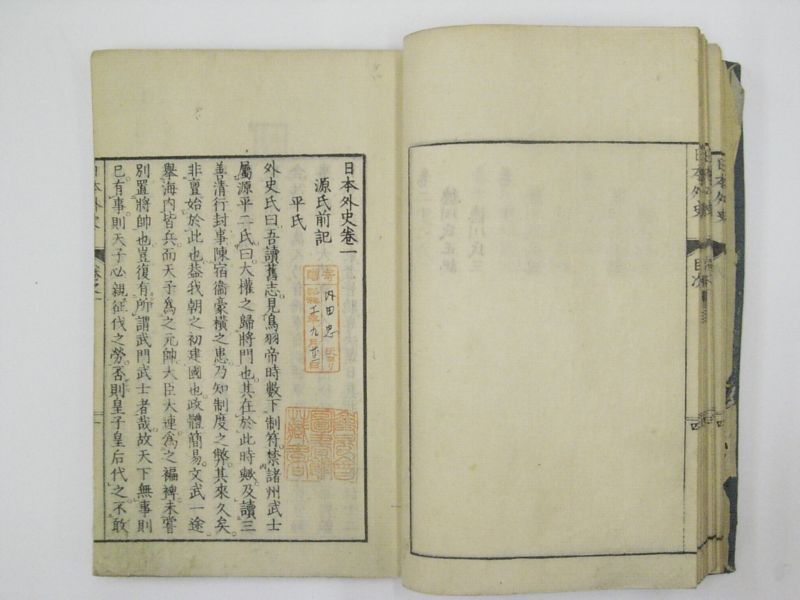 日本外史
目次
四
日本外史卷一
源氏前記
平氏
外史氏曰吾讀舊志見鳥羽帝時數下制符禁諸州武士
屬源平二氏曰大權之歸將門也其在於此時歟及讀三
善清行封事陳宿衞豪橫之患乃知制度之弊其來久矣
非亶始於此也蓋我朝之初建國也政體簡易文武一途
舉海內皆兵而天子爲之元帥大臣大連爲之褊裨未嘗
別置將帥也豈復有所謂武門武士者哉故天下無事則
已有事則天子必親征伐之勞否則皇子皇后代之不敢
內田
九月
日本外史
卷之一